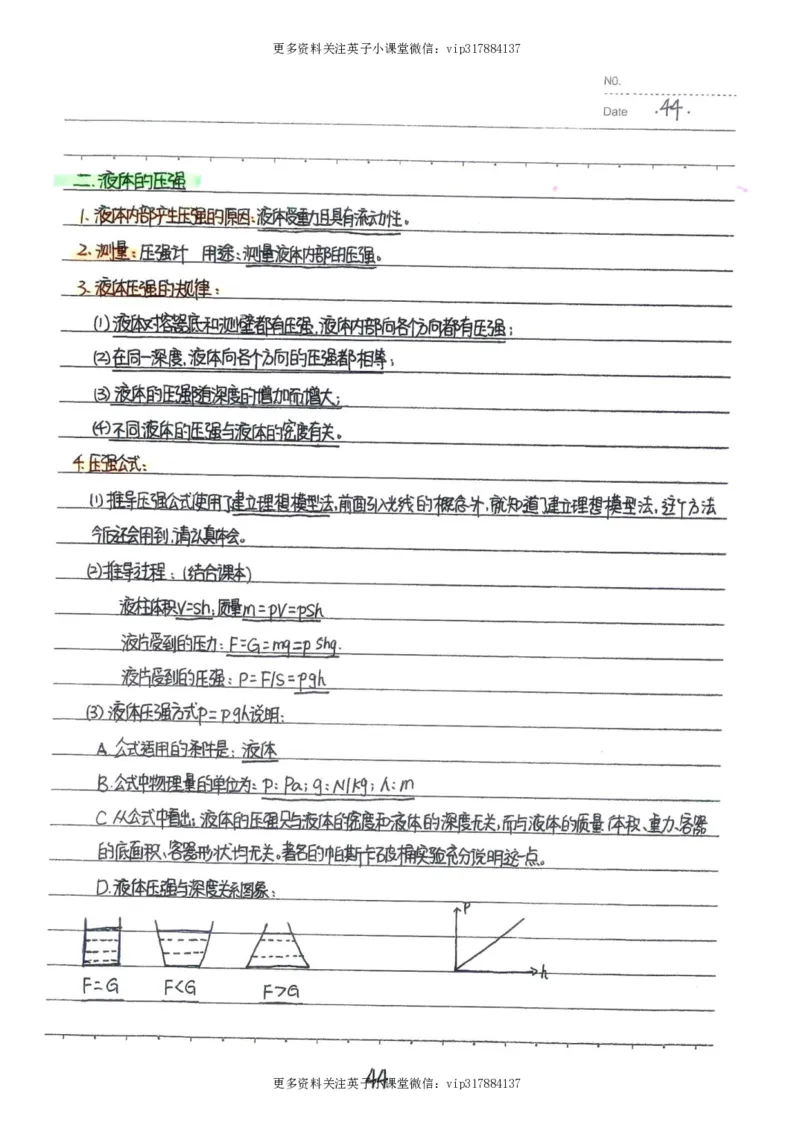 更多资料关注英子小课堂微信：vip317884137
NO.
Date ·44·
二.液体的压强
1.液体内部产生压强的原因：液体受重力且具有流动性。
2.测量：压强计 用途：测量液体内部的压强。
3.液体压强的规律：
(1)液体对容器底和测壁都有压强，液体内部向各个方向都有压强；
(2)在同一深度，液体向各个方向的压强都相等；
(3)液体的压强随深度的增加而增大；
(4)不同液体的压强与液体的密度有关。
4.压强公式：
(1)推导压强公式使用了建立理想模型法，前面引入光线的概念外，就知道了建立理想模型法，这个方法
今后还会用到，请认真体会。
(2)推导过程：(结合课本)
液柱体积V=Sh；质量m=ρV=ρSh
液片受到的压力：F=G=mg=ρShg.
液片受到的压强：P=F/S=ρgh
(3)液体压强方式P=ρgh说明：
A.公式适用的条件是：液体
B.公式中物理量的单位为：P：Pa；g：N/kg；h：m
C 从公式中看出：液体的压强只与液体的密度和液体的深度无关，而与液体的质量、体积、重力、容器
的底面积、容器形状均无关。著名的帕斯卡破桶实验充分说明这一点。
D.液体压强与深度关系图象：
P
h
F=G F<G F>G
44
更多资料关注英子小课堂微信：vip317884137